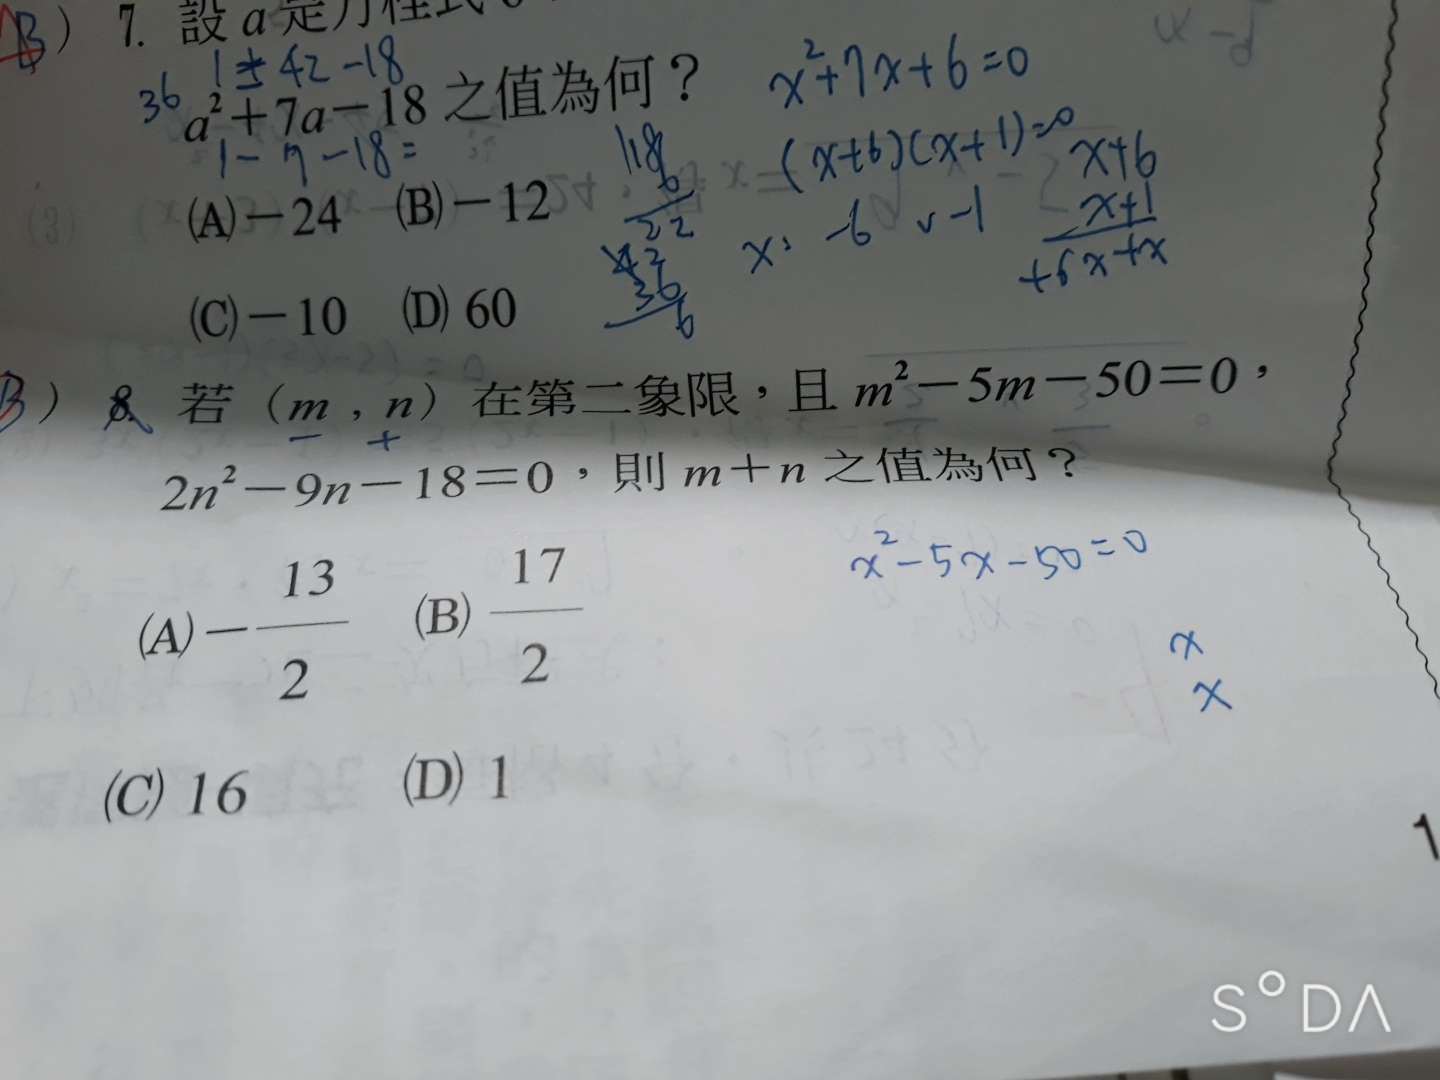 B) 7. 設 a 是方程式
1 ± 42 - 18 x²+7x+6=0
36 a²+7a-18 之值為何？
1 - 7 - 18 = 118 (x+6)(x+1)=0 x+6
(A)-24 (B)-12 6 x+1
22 x: -6 v -1 +6x+x
42
36
(C)-10 (D) 60 6
B) 8. 若(m,n)在第二象限，且 m²-5m-50=0，
- +
2n²-9n-18=0，則 m+n 之值為何？
x²-5x-50=0
(A)-13/2 (B) 17/2
x
x
(C) 16 (D) 1
1
SODA